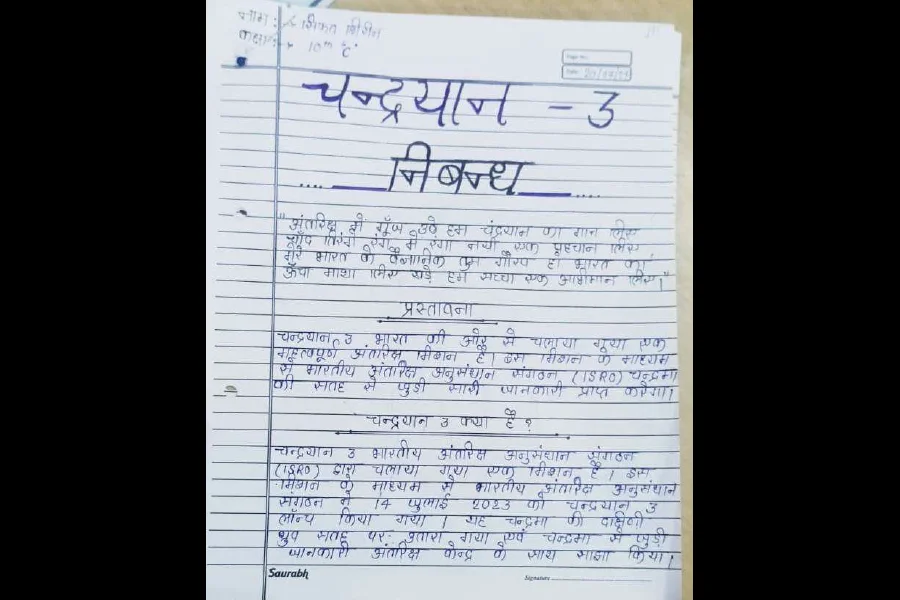 नाम :→ सिकत शिरीन
कक्षा :→ 10th C
Page No.
Date
चन्द्रयान - 3
निबन्ध
"अंतरिक्ष में गूँज उठे हम चंद्रयान का गान लिए
चाँद तिरंगा रंग में रंगा नया एक पहचान लिए
मेरे भारत के वैज्ञानिक तुम गौरव हो भारत का
ऊँचा माथा लिए खड़े हम सच्चा एक अभिमान लिए।"
प्रस्तावना
चन्द्रयान 3 भारत की ओर से चलाया गया एक
महत्वपूर्ण अंतरिक्ष मिशन है। इस मिशन के माध्यम
से भारतीय अंतरिक्ष अनुसंधान संगठन (ISRO) चन्द्रमा
की सतह से जुड़ी सारी जानकारी प्राप्त करेगा।
चन्द्रयान 3 क्या है ?
चन्द्रयान 3 भारतीय अंतरिक्ष अनुसंधान संगठन
(ISRO) द्वारा चलाया गया एक मिशन है। इस
मिशन के माध्यम से भारतीय अंतरिक्ष अनुसंधान
संगठन ने 14 जुलाई 2023 को चन्द्रयान 3
लॉन्च किया गया। यह चन्द्रमा की दक्षिणी
ध्रुव सतह पर उतारा गया एवं चन्द्रमा से जुड़ी
जानकारी अंतरिक्ष केन्द्र के साथ साझा किया।
Saurabh
Signature